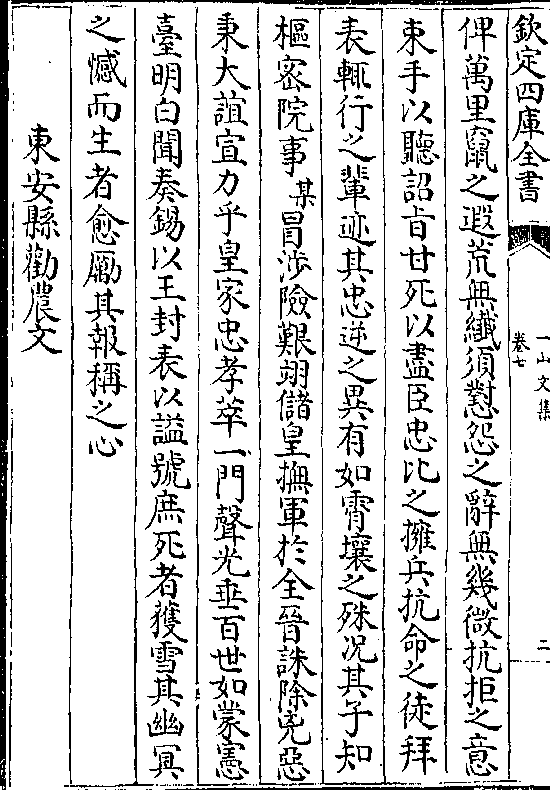 欽定四庫全書
一山文集
卷七
二
俾萬里竄之遐荒無纖須懟怨之辭無幾微抗拒之意
束手以聽詔旨甘死以盡臣忠比之擁兵抗命之徒拜
表輒行之輩迹其忠逆之異有如霄壤之殊况其子知
樞密院事某冒涉險艱翊儲皇撫軍於全晉誅除兇惡
秉大誼宣力乎皇家忠孝萃一門聲光垂百世如蒙憲
臺明白聞奏錫以王封表以謚號庶死者獲雪其幽冥
之憾而生者愈勵其報稱之心
東安縣勸農文